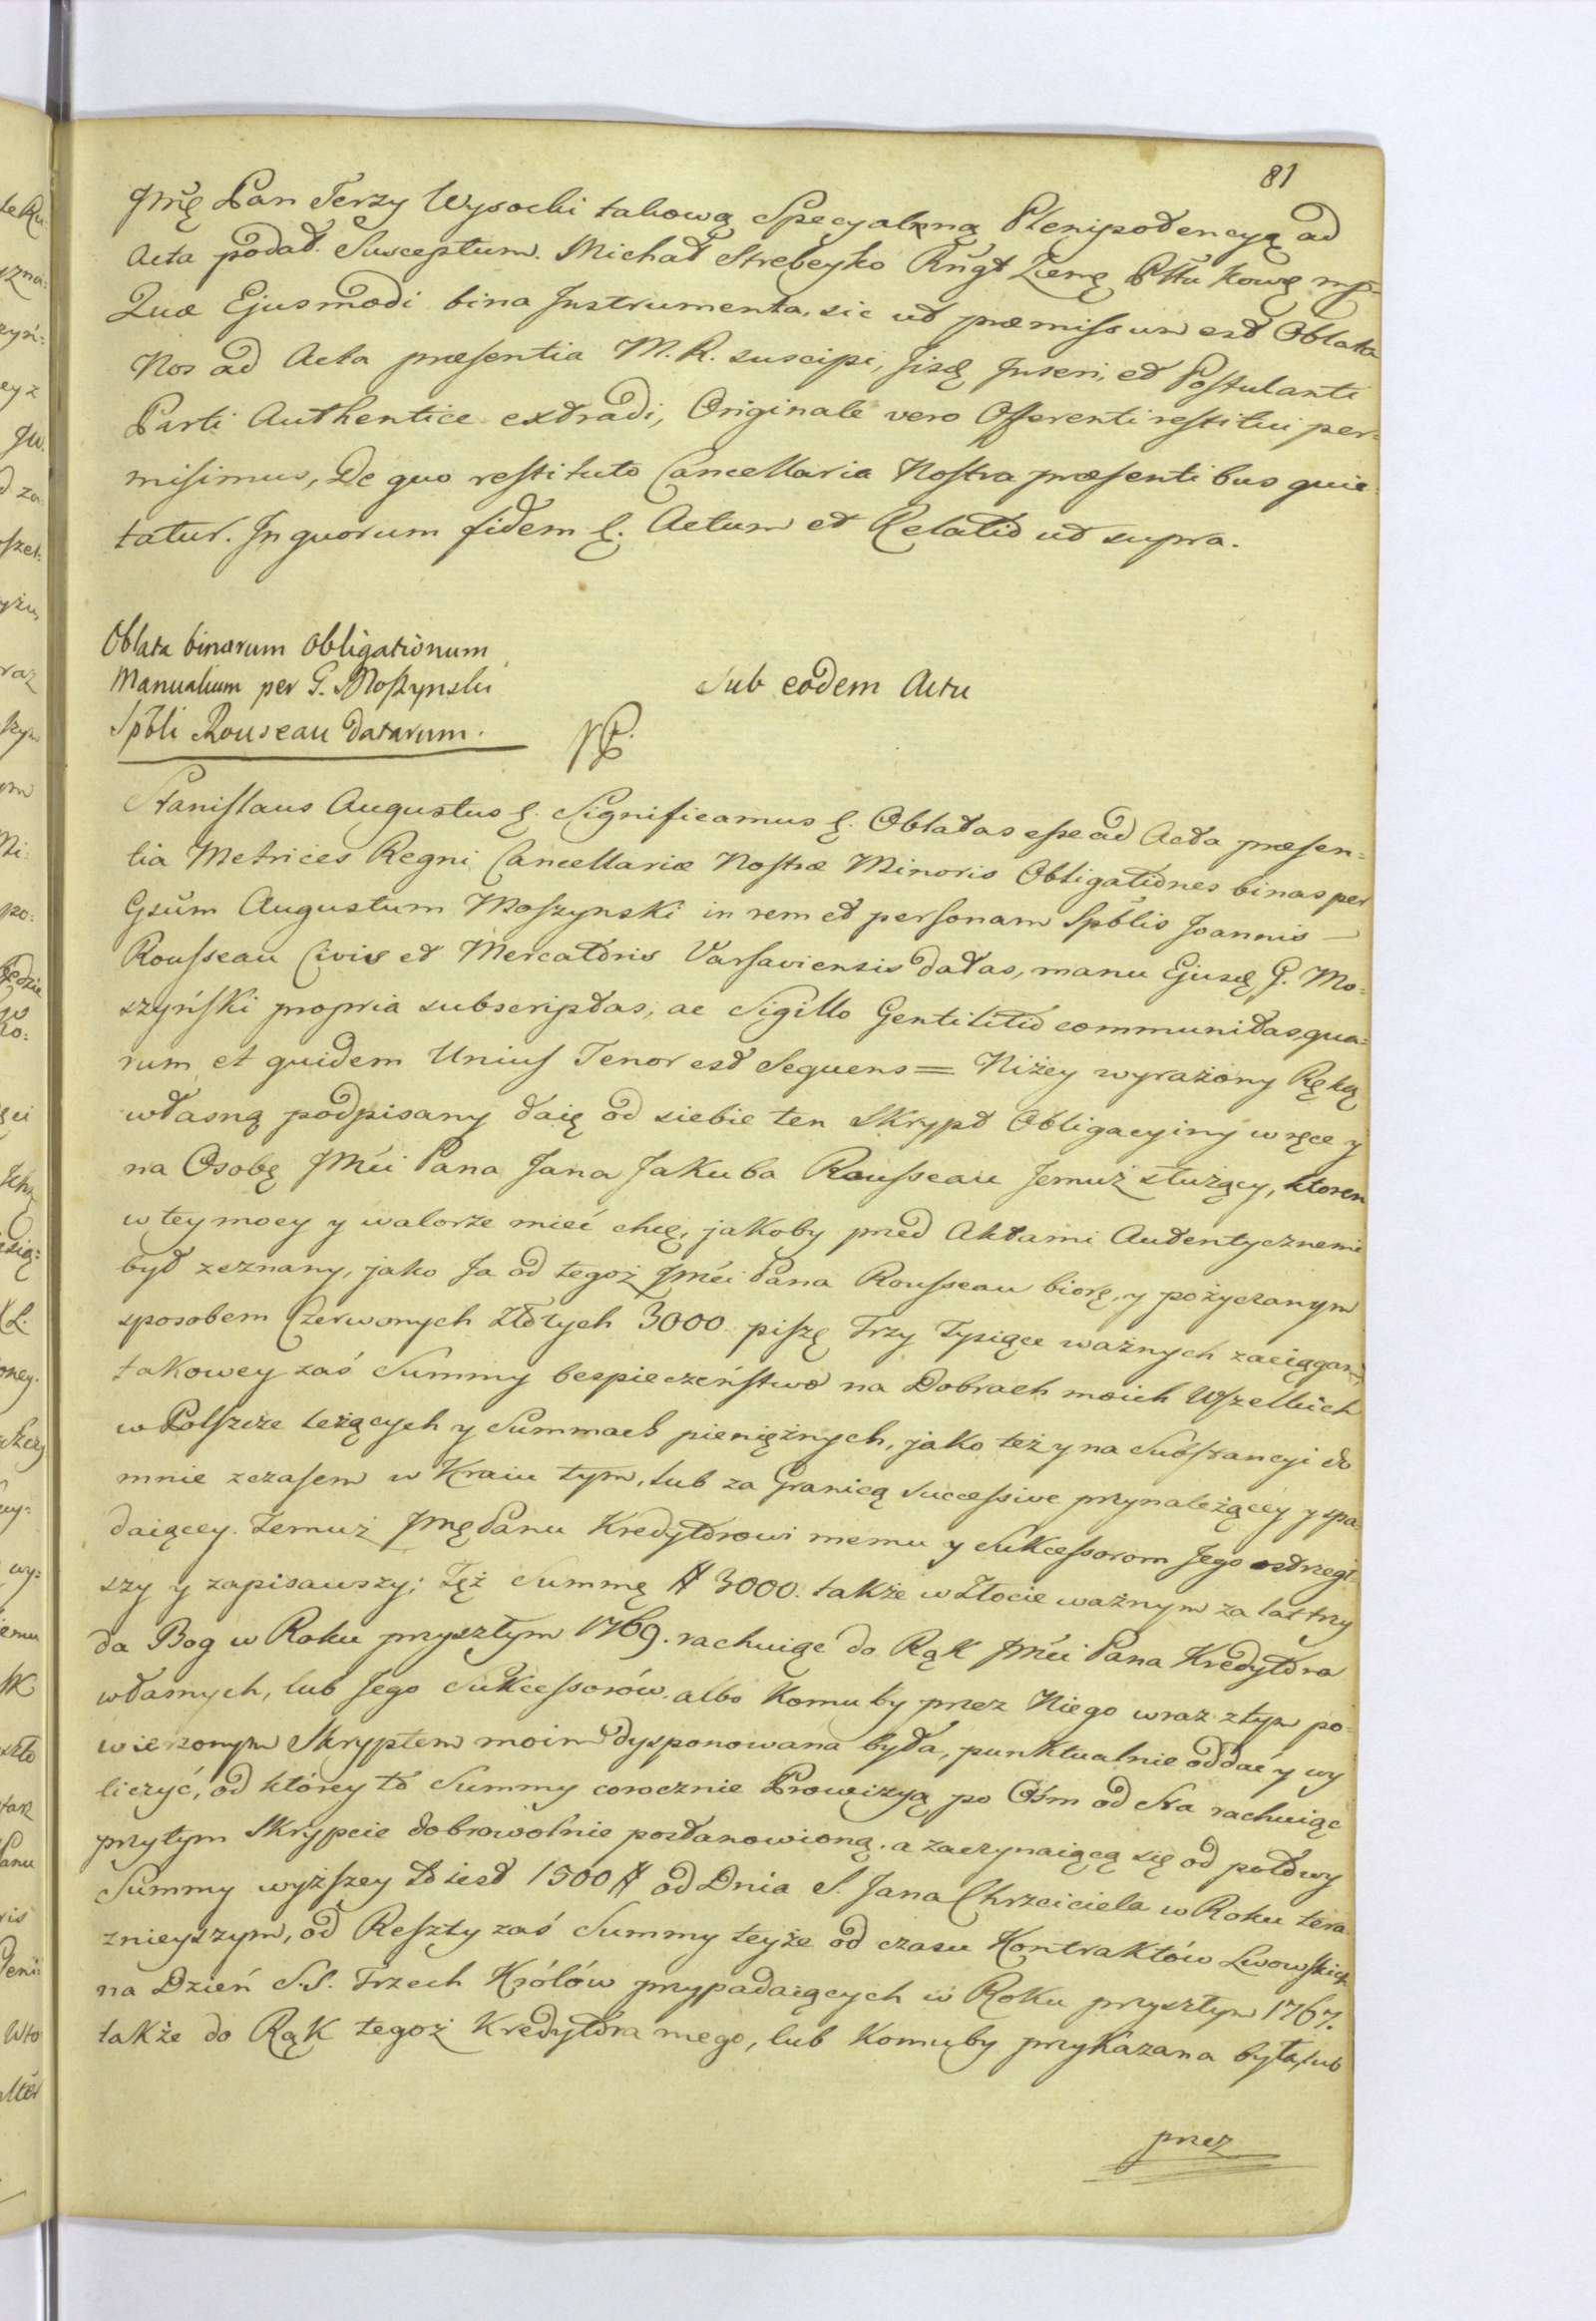 81
Jmę Pan Jerzy Wysocki takową Specyalną Plenipotencyą ad
Acta podał. Susceptum. Michał Strebeyko Ziemę Ptłu Kowę mp.
Quæ Ejusmodi bina Instrumenta, sic ut præmissum est Oblata
Nos ad Acta præsentia M. R. suscipi, Iisdę Inseri, et Postulanti
Parti Authentice extradi, Originale vero Offerenti restitui per=
misimus, De quo restituto Cancellaria Nostra præsentibus quie
tatur. In quorum fidem ę. Actum et Relatio ut supra.
Oblata binarum Obligationum
Manualium per G. Moszynski
Spbli Rouseau Datarum.
Sub eodem Actu
Stanislaus Augustus ę. Significamus ę. Oblatas esse ad Acta præsen=
tia Metrices Regni Cancellariæ Nostræ Minoris Obligationes binas per
Gsum Augustum Moszynski in rem et personam Spblis Joannis —
Rousseau Civis et Mercatoris Varsaviensis datas, manu Ejusdę G. Mo=
szyński propria subscriptas, ac Sigillo Gentilitio communitas, qua=
rum et quidem Unius Tenor est Sequens = Niżey wyrażony Ręką
własną podpisany daię od siebie ten Skrypt Obligacyiny w ręce y
na Osobę Jmci Pana Jana Jakuba Rousseau Jemuż służący, ktoren
w tey mocy y walorze mieć chcę, jakoby przed Aktami Autentycznemi
był zeznany, jako Ja od tegoż Jmci Pana Rousseau biorę, y pożyczanym
sposobem Czerwonych Złotych 3000 piszę Trzy Tysiące ważnych zaciągam,
takowey zaś Summy bespieczeństwo na Dobrach moich Wszelkich
w Polszcze leżących y Summach pieniężnych, jako też y na Substancyi do
mnie zczasem w Kraiu tym, lub za Granicą successive przynależącey y spa=
daiącey. Temuż Jmę Panu Kredytorowi memu y Sukcessorom Jego ostrzegł
szy y zapisawszy; Tęż Summę # 3000. także w Złocie ważnym za lat trzy
da Bog w Roku przyszłym 1769. rachuiąc do Rąk Jmci Pana Kredytora
własnych, lub Jego Sukcessorów, albo komu by przez Niego wraz ztym po=
wierzonym Skryptem moim dysponowana była, punktualnie oddać y wy
liczyć, od którey to Summy corocznie Prowizyą po Ośm od Sta rachuiąc
przy tym Skrypcie dobrowolnie postanowioną, a zaczynaiącą się od połowy
Summy wyższey to iest 1500 # od Dnia S. Jana Chrzciciela w Roku tera
znieyszym, od Reszty zaś Summy teyże od czasu Kontraktów Lwowskich
na Dzień S.S. Trzech Królów przypadaiących w Roku przyszłym 1767.
także do Rąk tegoż Kredytora mego, lub komuby przykazana była, lub
przez